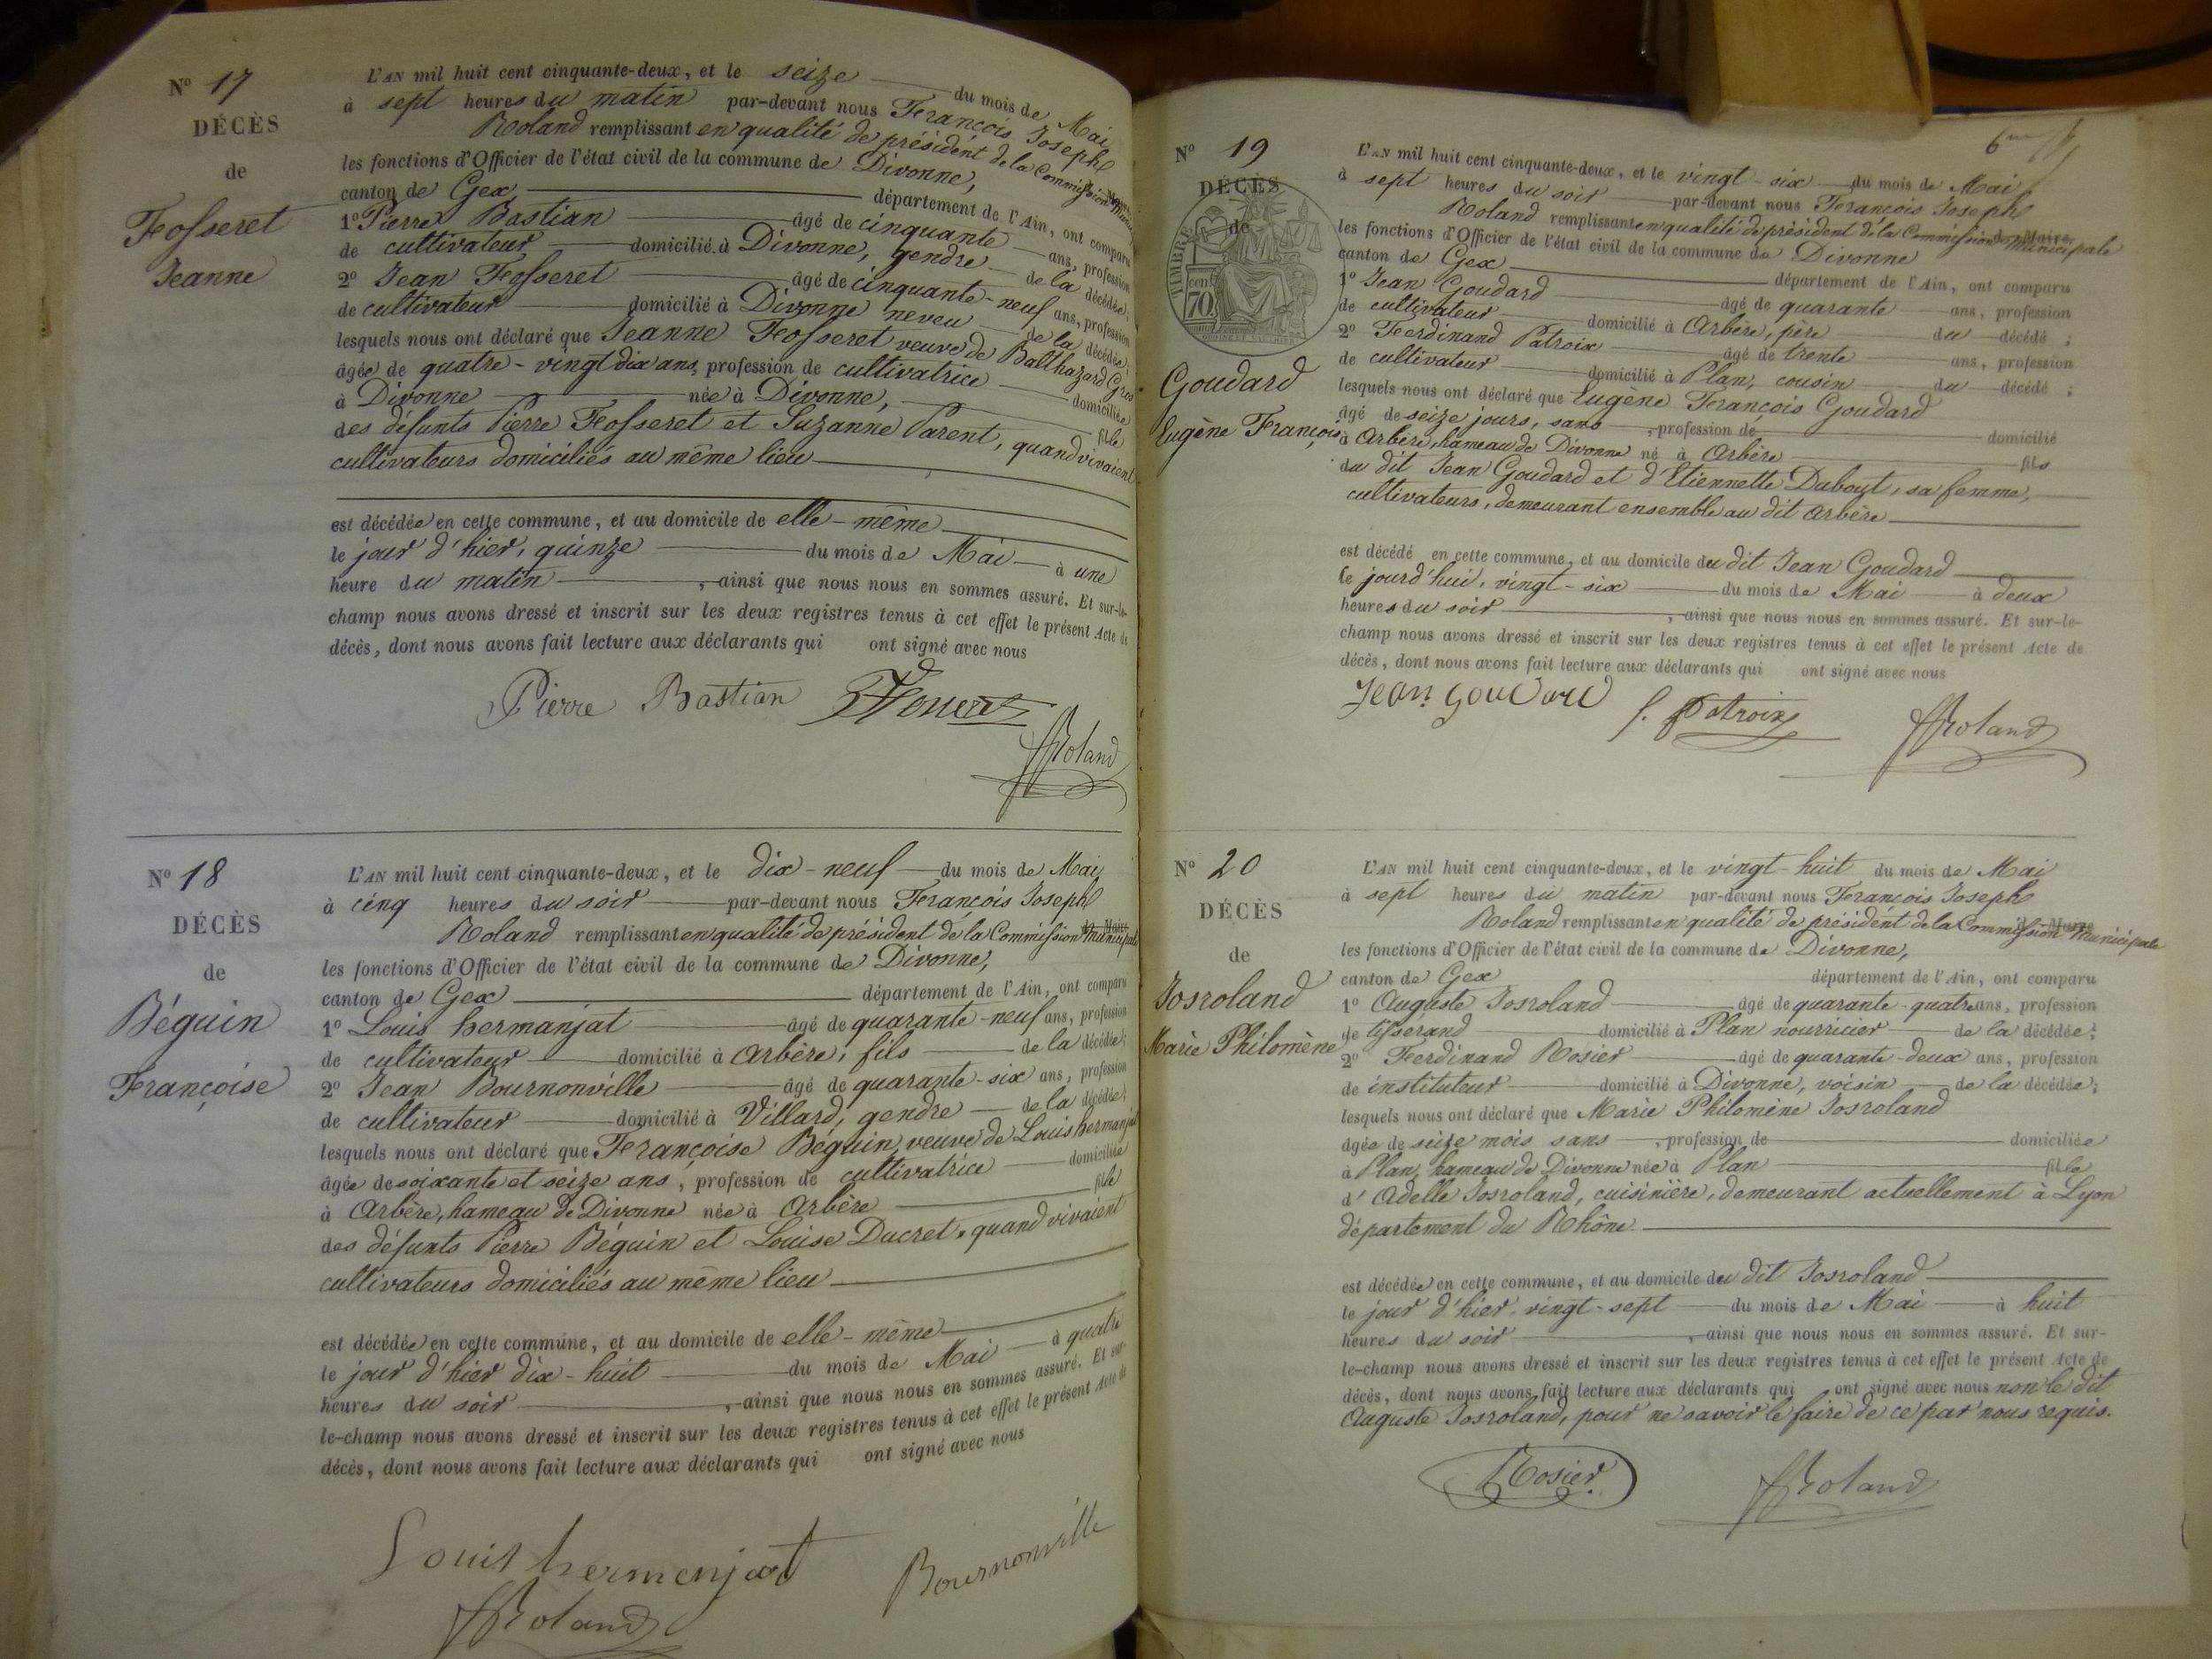 N° 17
DÉCÈS
de
Fosseret
Jeanne
L'AN mil huit cent cinquante-deux, et le seize du mois de Mai
à sept heures du matin par-devant nous François Joseph
Roland remplissant en qualité de président de la Commission
les fonctions d'Officier de l'état civil de la commune de Divonne,
canton de Gex département de l'Ain, ont comparu
1° Pierre Bastian âgé de cinquante ans, profession
de cultivateur domicilié à Divonne, gendre de la décédée;
2° Jean Fosseret âgé de cinquante-neuf ans, profession
de cultivateur domicilié à Divonne neveu de la décédée;
lesquels nous ont déclaré que Jeanne Fosseret veuve de Balthazard Gros
âgée de quatre-vingt dix ans, profession de cultivatrice domiciliée
à Divonne née à Divonne, fille
des défunts Pierre Fosseret et Suzanne Parent, quand vivaient
cultivateurs domiciliés au même lieu
est décédée en cette commune, et au domicile de elle-même
le jour d'hier, quinze du mois de Mai à une
heure du matin, ainsi que nous nous en sommes assuré. Et sur-le-
champ nous avons dressé et inscrit sur les deux registres tenus à cet effet le présent Acte de
décès, dont nous avons fait lecture aux déclarants qui ont signé avec nous
Pierre Bastian
JRoland
N° 18
DÉCÈS
de
Béguin
Françoise
L'AN mil huit cent cinquante-deux, et le dix-neuf du mois de Mai,
à cinq heures du soir par-devant nous François Joseph
Roland remplissant en qualité de président de la Commission Municipale
les fonctions d'Officier de l'état civil de la commune de Divonne,
canton de Gex département de l'Ain, ont comparu
1° Louis hermanjat âgé de quarante-neuf ans, profession
de cultivateur domicilié à Arbère, fils de la décédée;
2° Jean Bournonville âgé de quarante-six ans, profession
de cultivateur domicilié à Villard, gendre de la décédée;
lesquels nous ont déclaré que Françoise Béguin, veuve de Louis hermanjat
âgée de soixante et seize ans, profession de cultivatrice domiciliée
à Arbère, hameau de Divonne née à Arbère fille
des défunts Pierre Béguin et Louise Ducret, quand vivaient
cultivateurs domiciliés au même lieu
est décédée en cette commune, et au domicile de elle-même
le jour d'hier dix-huit du mois de Mai à quatre
heures du soir, ainsi que nous nous en sommes assuré. Et sur-
le-champ nous avons dressé et inscrit sur les deux registres tenus à cet effet le présent Acte de
décès, dont nous avons fait lecture aux déclarants qui ont signé avec nous
Louis hermenjat Bournonville
JRoland
6me
N° 19
DÉCÈS
de
TIMBRE
70 cen
Goudard
Eugène François
L'AN mil huit cent cinquante-deux, et le vingt-six du mois de Mai
à sept heures du soir par-devant nous François Joseph
Roland remplissant en qualité de président de la Commission Municipale
les fonctions d'Officier de l'état civil de la commune de Divonne
canton de Gex département de l'Ain, ont comparu
1° Jean Goudard âgé de quarante ans, profession
de cultivateur domicilié à Arbère, père du décédé;
2° Ferdinand Patroix âgé de trente ans, profession
de cultivateur domicilié à Plan, cousin du décédé;
lesquels nous ont déclaré que Eugène François Goudard
âgé de seize jours, sans, profession de domicilié
à Arbère, hameau de Divonne né à Arbère fils
du dit Jean Goudard et d'Etiennette Dubout, sa femme,
cultivateurs, demeurant ensemble au dit Arbère
est décédé en cette commune, et au domicile du dit Jean Goudard
le jourd'hui, vingt-six du mois de Mai à deux
heures du soir, ainsi que nous nous en sommes assuré. Et sur-le-
champ nous avons dressé et inscrit sur les deux registres tenus à cet effet le présent Acte de
décès, dont nous avons fait lecture aux déclarants qui ont signé avec nous
Jean Goudard
f. Patroix JRoland
N° 20
DÉCÈS
de
Josroland
Marie Philomène
L'AN mil huit cent cinquante-deux, et le vingt-huit du mois de Mai
à sept heures du matin par-devant nous François Joseph
Roland remplissant en qualité de président de la Commission Municipale
les fonctions d'Officier de l'état civil de la commune de Divonne,
canton de Gex département de l'Ain, ont comparu
1° Auguste Josroland âgé de quarante-quatre ans, profession
de tisserand domicilié à Plan nourricier de la décédée;
2° Ferdinand Rosier âgé de quarante-deux ans, profession
de instituteur domicilié à Divonne, voisin de la décédée;
lesquels nous ont déclaré que Marie Philomène Josroland
âgée de seize mois sans, profession de domiciliée
à Plan, hameau de Divonne née à Plan fille
d'Adelle Josroland, cuisinière, demeurant actuellement à Lyon
département du Rhône.
est décédée en cette commune, et au domicile du dit Josroland
le jour d'hier, vingt-sept du mois de Mai à huit
heures du soir, ainsi que nous nous en sommes assuré. Et sur-
le-champ nous avons dressé et inscrit sur les deux registres tenus à cet effet le présent Acte de
décès, dont nous avons fait lecture aux déclarants qui ont signé avec nous non le dit
Auguste Josroland, pour ne savoir le faire de ce par nous requis.
Rosier JRoland